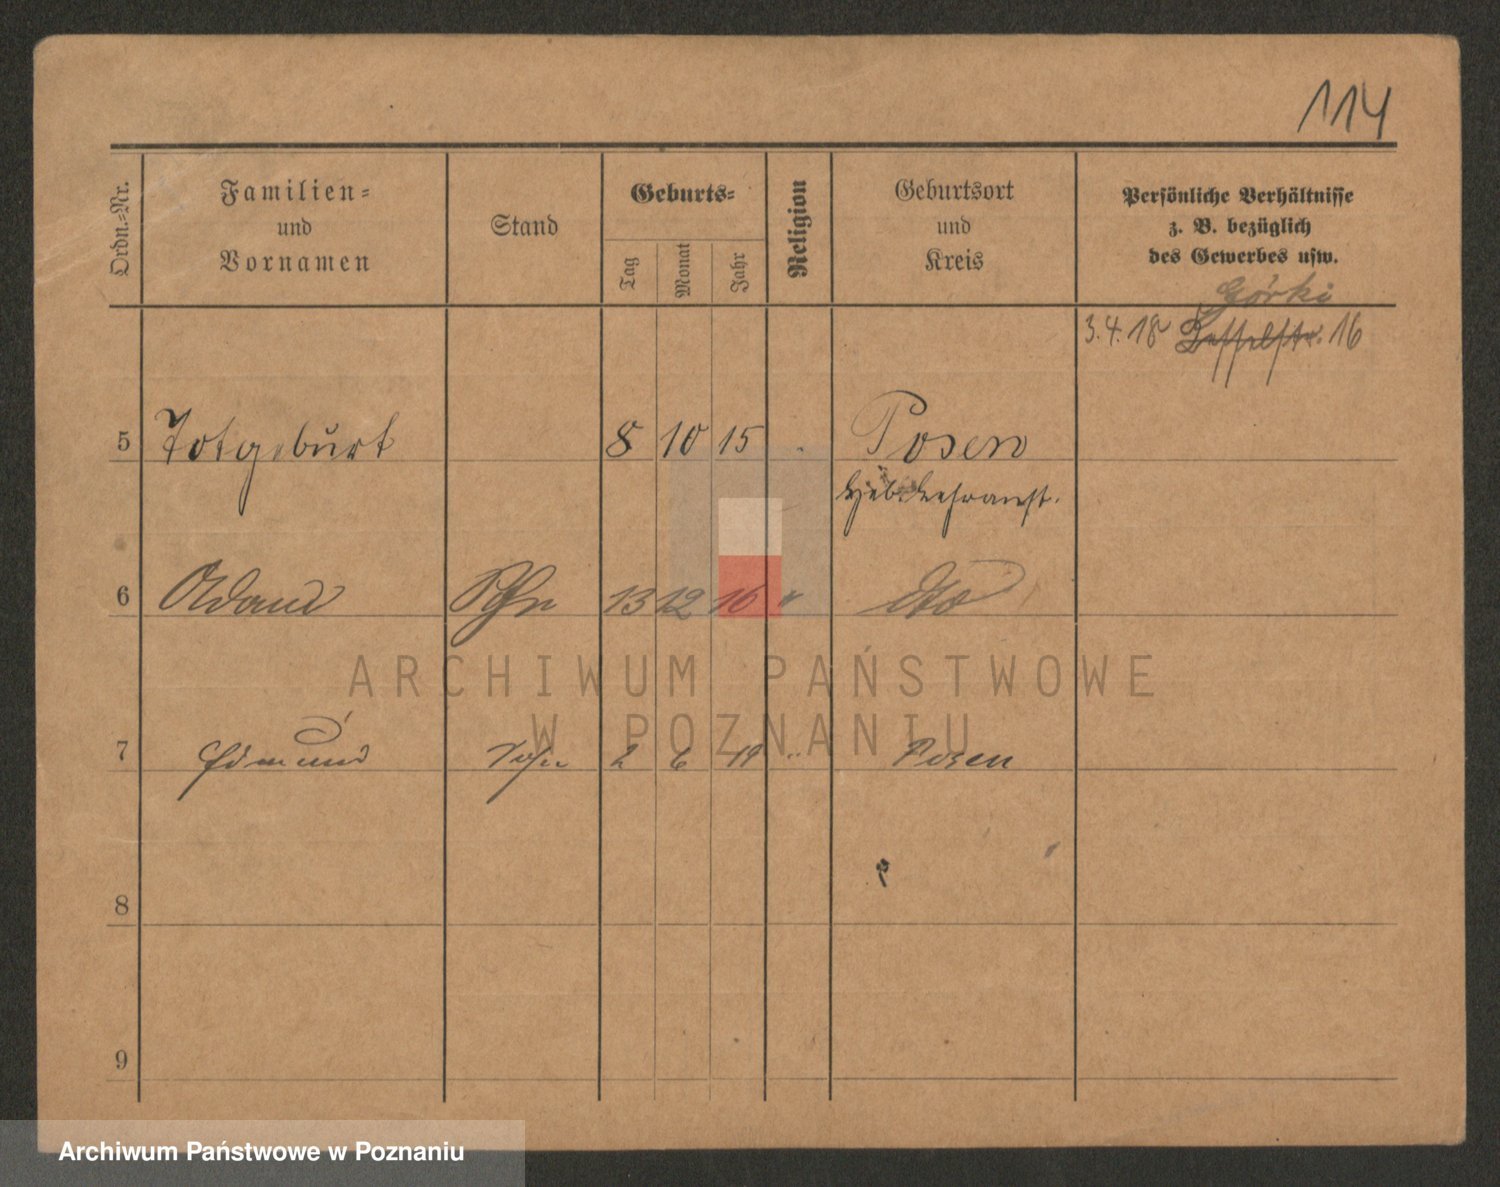 114
Ordn.-Nr.
Familien-
und
Vornamen
Stand
Geburts-
Tag
Monat
Jahr
Religion
Geburtsort
und
Kreis
Persönliche Verhältnisse
z. B. bezüglich
des Gewerbes usw.
Górki
3.4.18 16
5 Totgeburt 8 10 15 Posen
6 13 12 16 " dto
7 Edmund Sohn 2 6 19 " Posen
8
9
ARCHIWUM PAŃSTWOWE
W POZNANIU
Archiwum Państwowe w Poznaniu